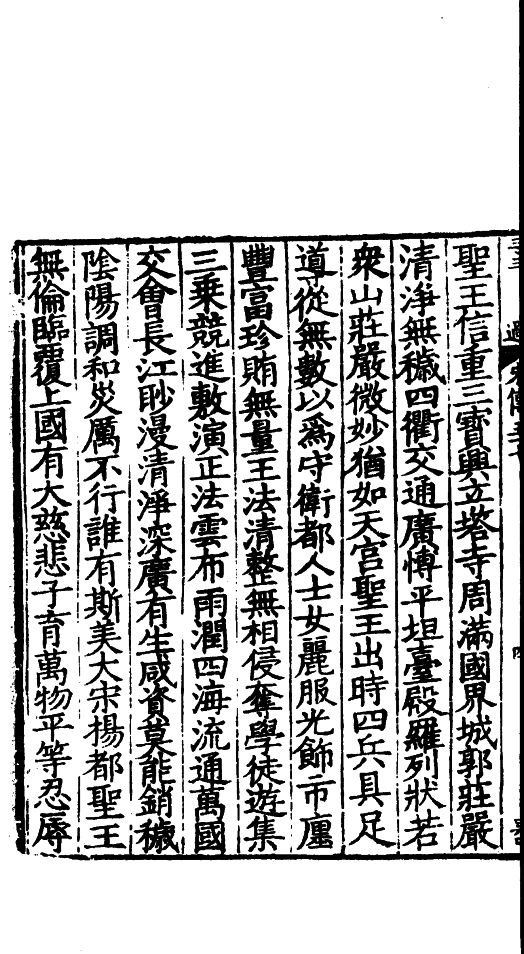 聖王信重三寳興立塔寺周滿國界城郭莊嚴
清淨無穢四衢交通廣愽平坦臺殿羅列狀若
衆山莊嚴微妙猶如天宮聖王出時四兵具足
導從無數以爲守衛都人士女麗服光飾市廛
豐富珍賄無量王法清整無相侵奪學徒遊集
三乗競進敷演正法雲布雨潤四海流通萬國
交會長江眇漫清淨深廣有生咸資莫能銷穢
隂陽調和災厲不行誰有斯美大宋揚都聖王
無倫臨覆上國有大慈悲子育萬物平等忍辱